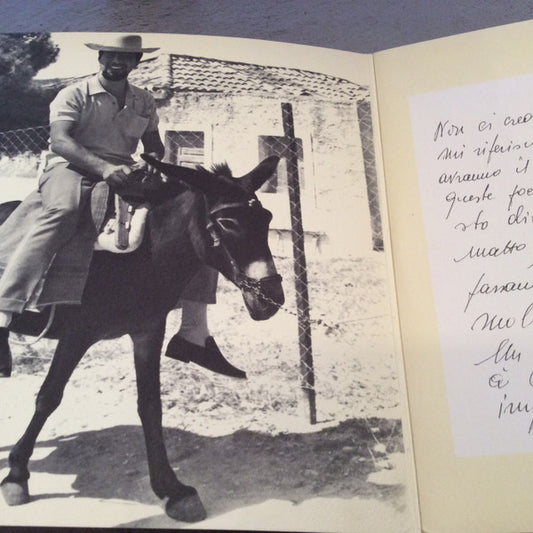 Non ci cre
mi riferisc
avranno il
queste poe
sto di
matto
fassan
mol
Un
è
im